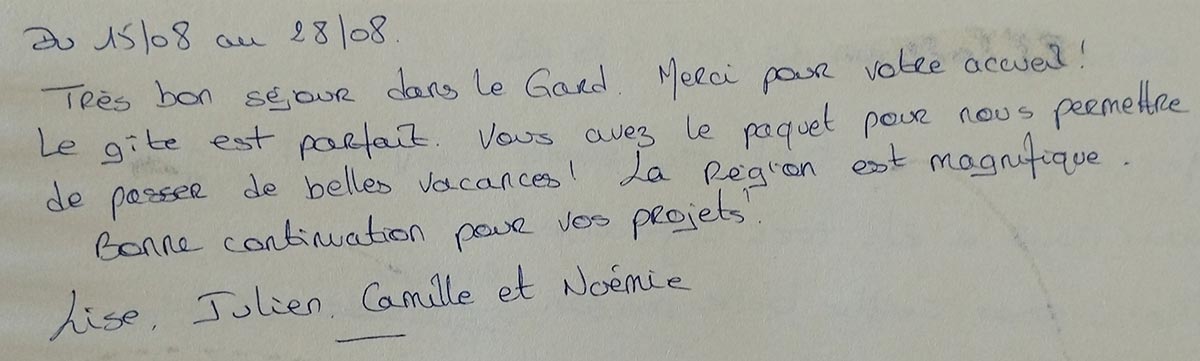 Du 15/08 au 28/08.
Très bon séjour dans le Gard. Merci pour votre accueil !
Le gîte est parfait. Vous avez le paquet pour nous permettre
de passer de belles vacances ! La Région est magnifique.
Bonne continuation pour vos projets !
Lise, Julien, Camille et Noémie